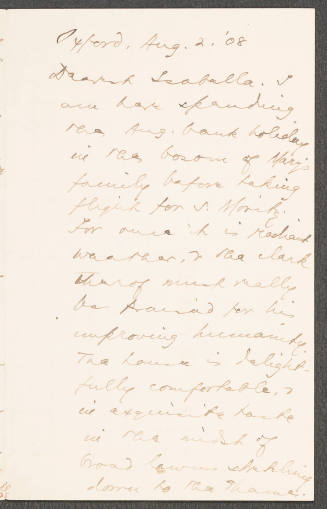 Oxford, Aug. 2. '08
Dearest Isabella. I
am here spending
the Aug. bank holiday
in the bosom of Mary's
family before taking
flight for S. Moritz.
For once it is radiant
weather, & the clerk
thereof must really
be praised for his
improving humanity.
The house is delight-
fully comfortable, &
in exquisite taste
in the midst of
broad lawns stretching
down to the Thames.